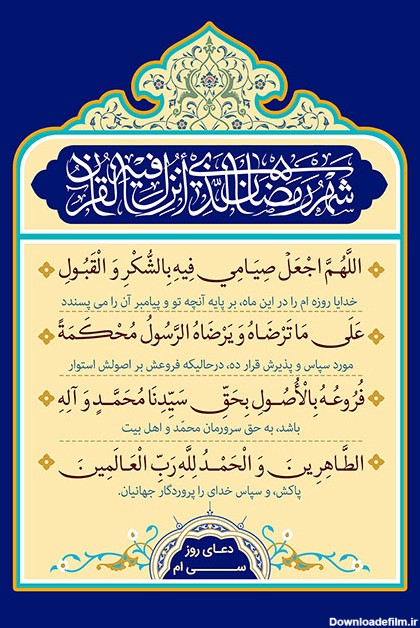 شهر رمضان الذي أنزل فيه القرآن
اللَّهُمَّ اجْعَلْ صِيَامِي فِيهِ بِالشُّكْرِ وَ الْقَبُولِ
خدایا روزه ام را در این ماه، بر پایه آنچه تو و پیامبر آن را می پسندد
عَلَى مَا تَرْضَاهُ وَ يَرْضَاهُ الرَّسُولُ مُحْكَمَةً
مورد سپاس و پذیرش قرار ده، درحالیکه فروعش بر اصولش استوار
فُرُوعُهُ بِالْأُصُولِ بِحَقِّ سَيِّدِنَا مُحَمَّدٍ وَ آلِهِ
باشد، به حق سرورمان محمّد و اهل بیت
الطَّاهِرِينَ وَ الْحَمْدُ لِلَّهِ رَبِّ الْعَالَمِينَ
پاکش، و سپاس خدای را پروردگار جهانیان.
دعای روز
سی ام
Downloadefilm.ir